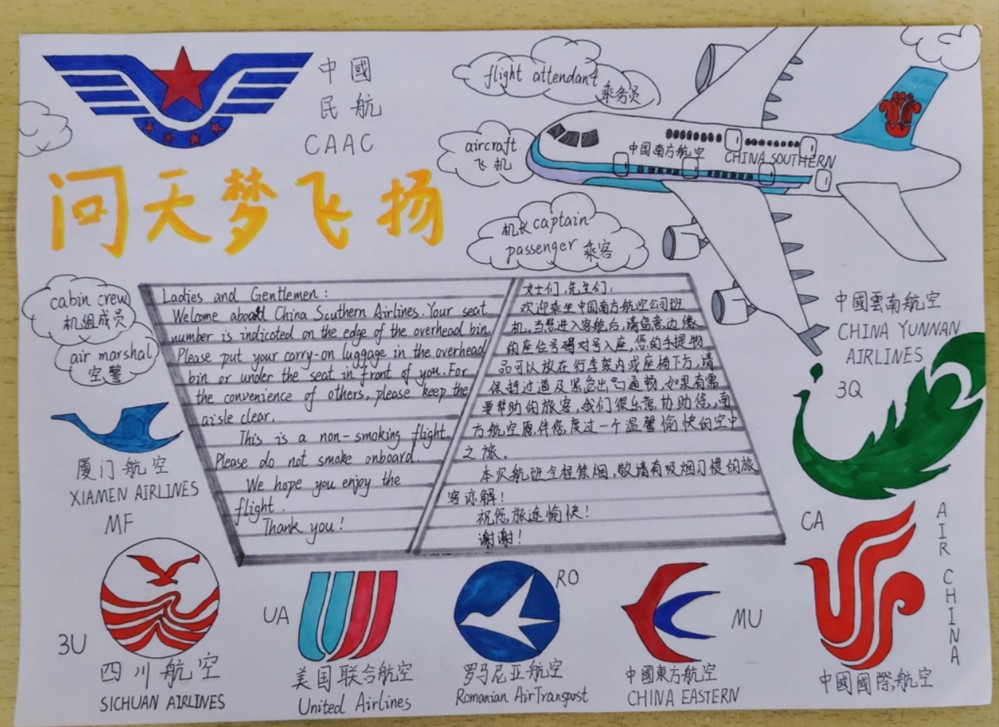 中國
民航
CAAC
flight attendant
乘务员
aircraft
飞机
中國南方航空 CHINA SOUTHERN
问天梦飞扬
机长 captain
passenger 乘客
cabin crew
机组成员
air marshal
空警
Ladies and Gentlemen:
Welcome aboard China Southern Airlines. Your seat
number is indicated on the edge of the overhead bin.
Please put your carry-on luggage in the overhead
bin or under the seat in front of you. For
the convenience of others, please keep the
aisle clear.
This is a non-smoking flight.
Please do not smoke onboard.
We hope you enjoy the
flight.
Thank you!
女士们,先生们:
欢迎乘坐中国南方航空公司班
机,当您进入客舱后,请留意边缘
的座位号码对号入座,您的手提物
品可以放在行李架内或座椅下方,请
保持过道及紧急出口通畅,如果有需
要帮助的旅客,我们很乐意协助您,南
方航空愿伴您度过一个温馨愉快的空中
之旅。
本次航班全程禁烟,敬请有吸烟习惯的旅
客谅解!
祝您旅途愉快!
谢谢!
中國雲南航空
CHINA YUNNAN
AIRLINES
3Q
厦门航空
XIAMEN AIRLINES
MF
3U
四川航空
SICHUAN AIRLINES
UA
美国联合航空
United Airlines
RO
罗马尼亚航空
Romanian AirTranspost
MU
中國東方航空
CHINA EASTERN
CA
AIR CHINA
中國國際航空